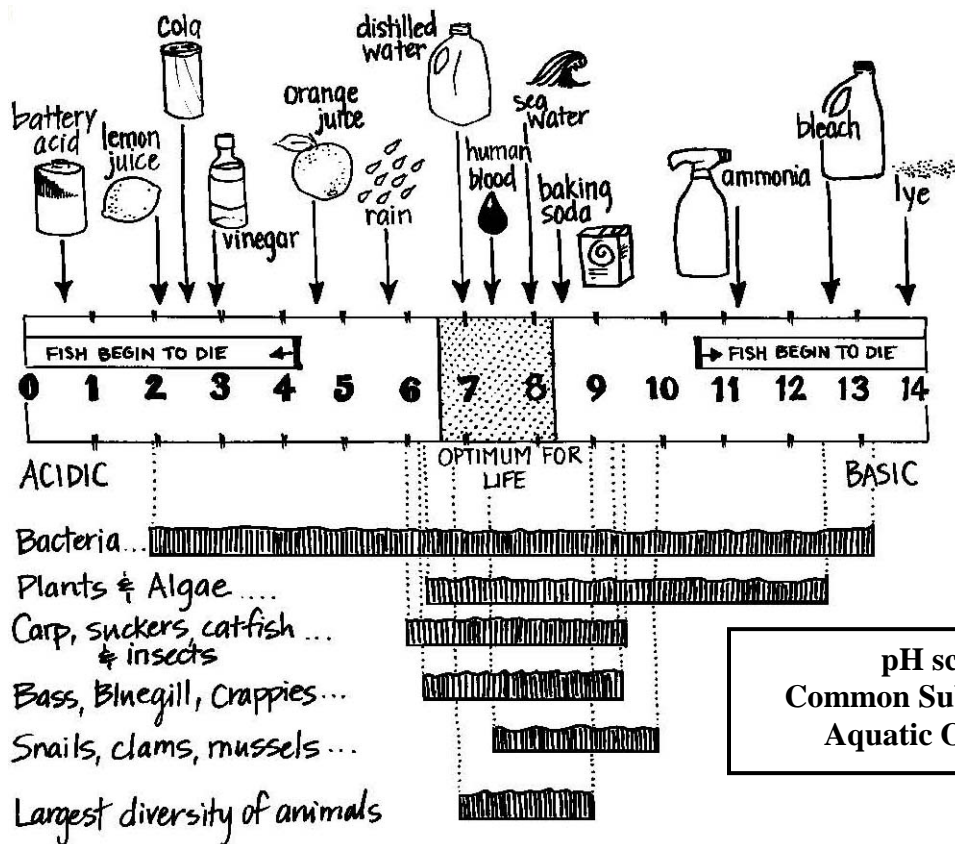 cola
distilled
water
battery
acid
lemon
juice
vinegar
orange
juice
rain
human
blood
sea
water
baking
soda
ammonia
bleach
lye
FISH BEGIN TO DIE
FISH BEGIN TO DIE
0 1 2 3 4 5 6 7 8 9 10 11 12 13 14
ACIDIC
OPTIMUM FOR
LIFE
BASIC
Bacteria...
Plants & Algae ....
Carp, suckers, catfish ...
& insects
Bass, Bluegill, Crappies...
Snails, clams, mussels ...
Largest diversity of animals
pH sc
Common Su
Aquatic